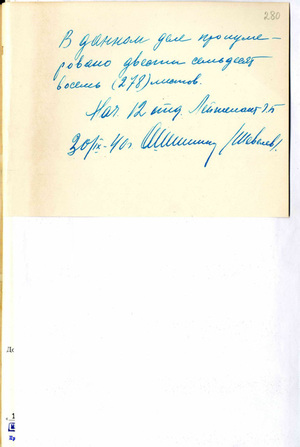 280
В данном деле пронуме-
ровано двести семьдесят
восемь (278) листов.
Нач 12 отд. Лейтенант ГБ
30/IX-40г